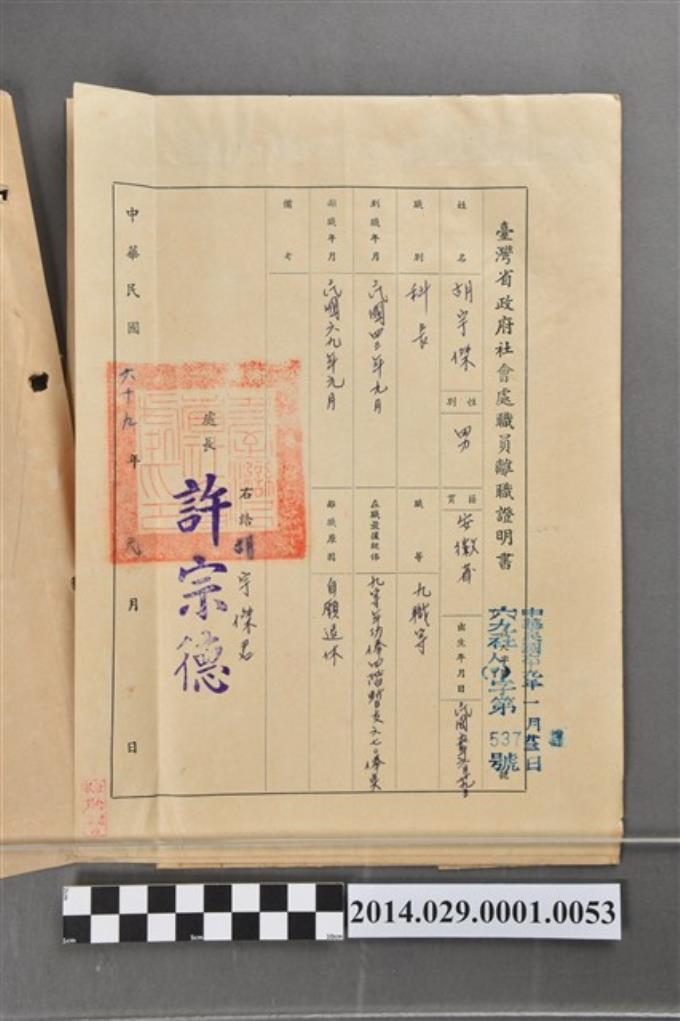 臺灣省政府社會處職員離職證明書
中華民國六十九年一月廿三日
六九社人(二)字第537號
姓名 胡宇傑 性別 男 籍貫 安徽省 出生年月日 民國
職別 科長 職等 九職等
到職年月 民國四三年九月 在職最後銓俸 九等年功俸四階暫支六七〇俸點
離職年月 民國六九年元月 離職原因 自願退休
備考
右給胡宇傑君
處長 許宗德
中華民國六十九年元月 日
2014.029.0001.0053
1cm 5cm 10cm